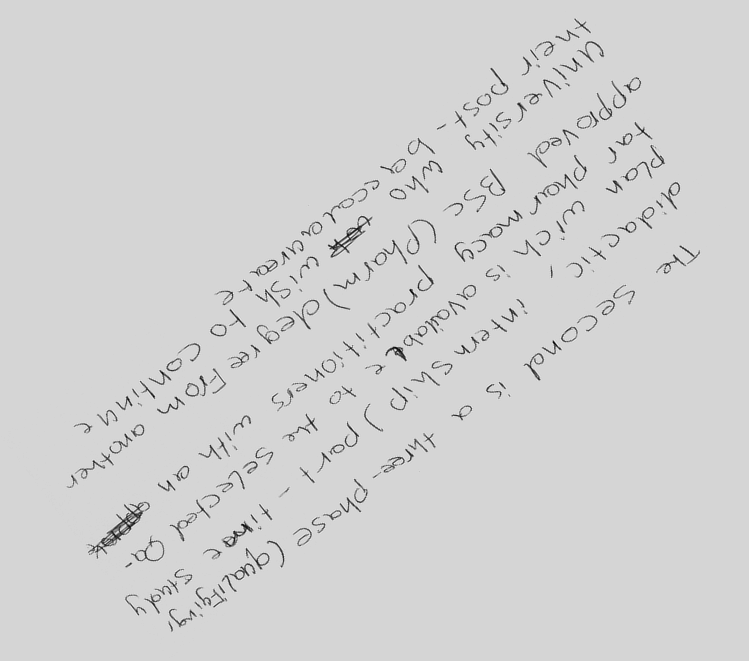 The second is a three-phase (qualifying,
didactic, internship) part-time study
plan wich is available to the selected Qa-
tar pharmacy practitioners with an
approved BSc (pharm) degree From another
University who wish to continue
their post-baccalaureate